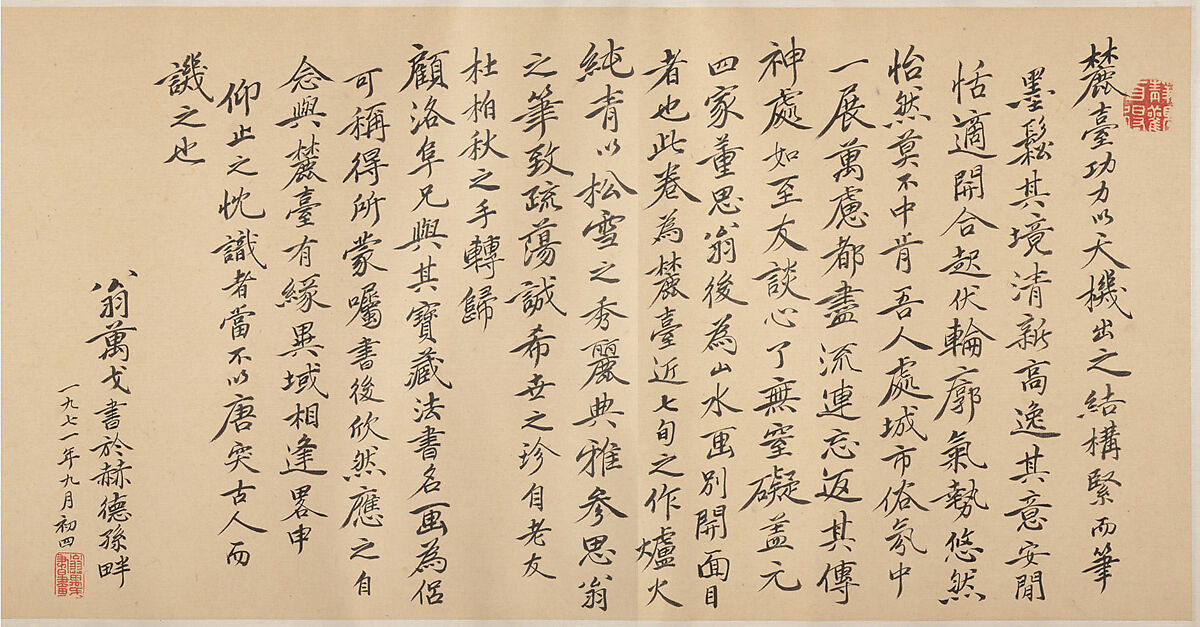 麓臺功力以天機出之結構緊而筆
墨鬆其境清新高逸其意安閒
恬適開合起伏輪廓氣勢悠然
怡然莫不中肯吾人處城市俗氛中
一展萬慮都盡流連忘返其傳
神處如至友談心了無窒礙蓋元
四家董思翁後為山水画別開面目
者也此卷為麓臺近七旬之作爐火
純青以松雪之秀麗典雅參思翁
之筆致疏蕩誠希世之珍自老友
杜柏秋之手轉歸
顧洛阜兄與其寶藏法書名画為侶
可稱得所蒙囑書後欣然應之自
念與麓臺有緣異域相逢畧申
仰止之忱識者當不以唐突古人而
譏之也
翁萬戈書於赫德孫畔
一九七一年九月初四